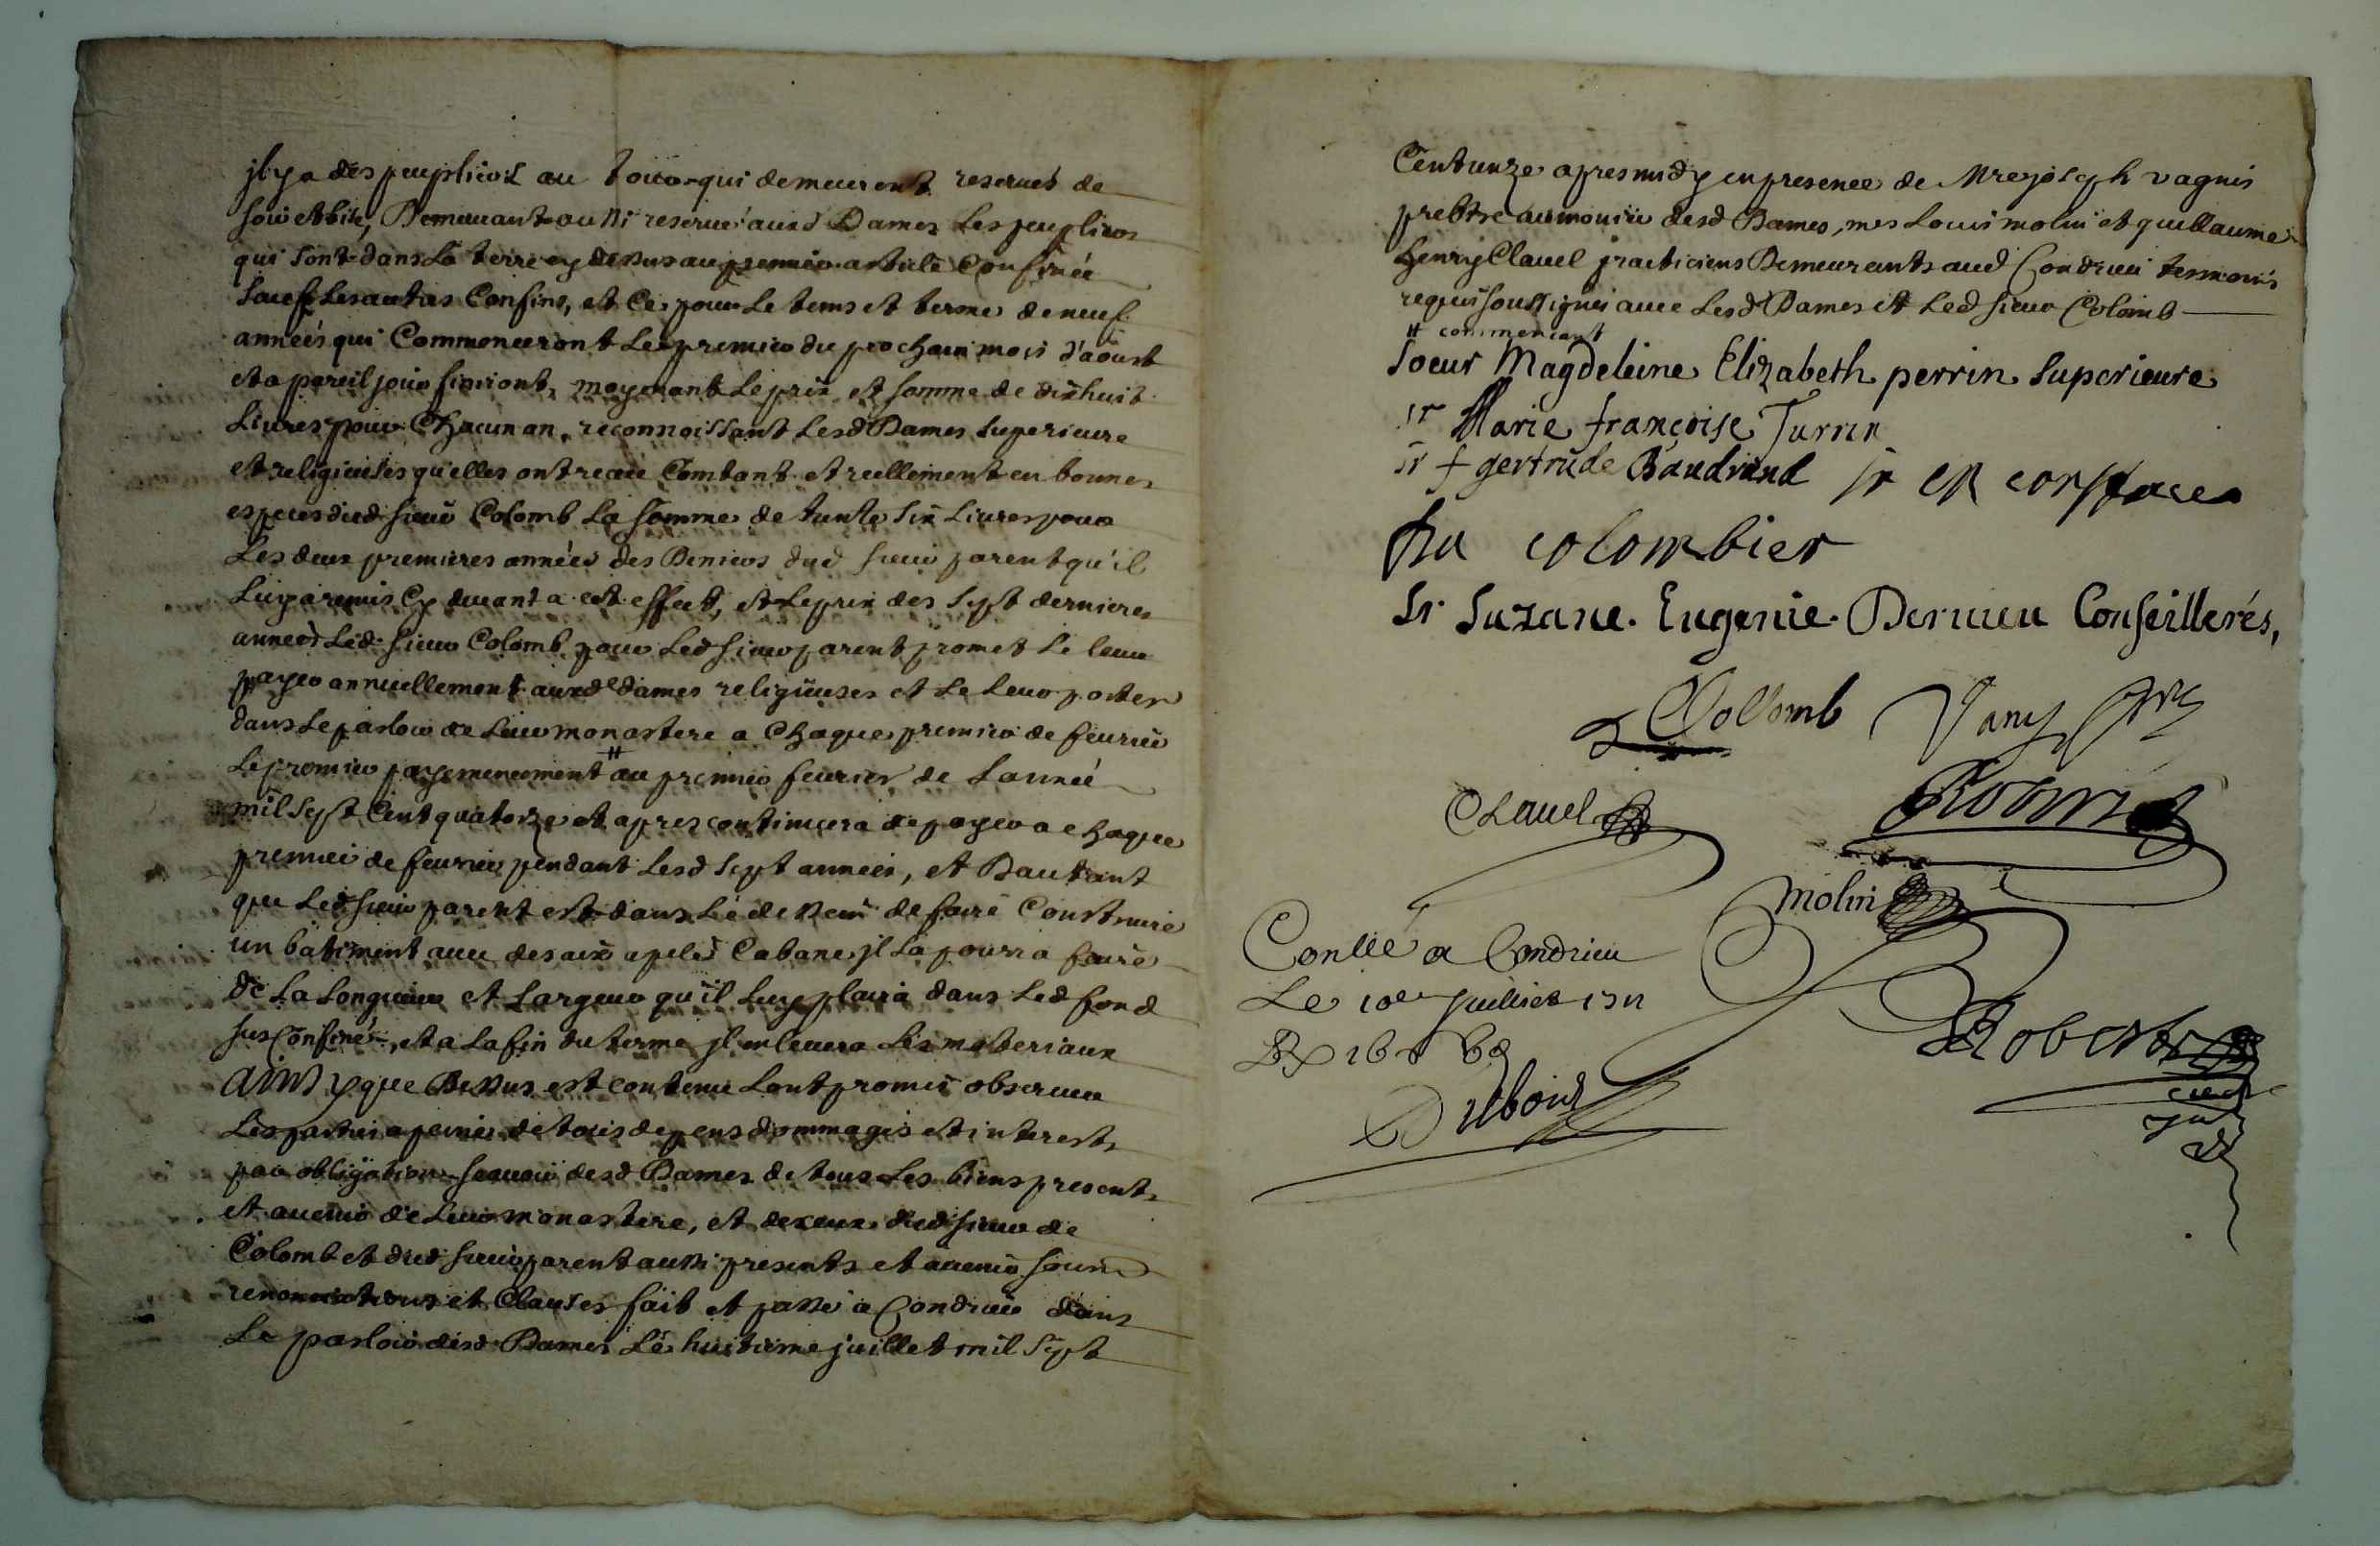 jl y a des peupliers au tour qui demeurent reservés de
Demeurant aussi reservé ausd Dames Les peupliers
qui sont dans La terre cy dessus au premier article Confinée
sauf Les autres Confins, et Ce pour Le tems et terme de neuf
années qui Commenceront Le premier du prochain mois d'aoust
et a pareil jour finiront, moyenant Le prix et somme de dixhuit
Livres pour Chacun an, reconnoissant Lesd Dames superieure
et religieuses qu'elles ont receu Comtant et reellement en bonnes
especes dud sieur Colomb La somme de trente six Livres pour
Les deux premieres années des Deniers dud sieur parent qu'il
Luy a remis Cy devant a cet effect, et Le prix des sept dernieres
années Led sieur Colomb pour Led sieur parent promet Le leur
payer annuellement auxd dames religieuses et Le Leur porter
dans Le parloir de Leur monastere a Chaque premier de fevrier
Le premier payement # au premier fevrier de Lannée
mil sept Cent quatorze et apres continuera de payer a chaque
premier de fevrier pendant Lesd sept années, et Dautant
que Led sieur parent est dans Le dessein de faire Construire
un bâtiment avec des aix apelé Cabane jl La pourra faire
de La Longueur et Largeur qu'il Luy plaira dans Led fond
sus Confiné, et a La fin du terme jl enlevera Les materiaux
Ainsy que Dessus est contenu Lont promis observer
Les parties a peine de tous depens dommages et interests
par obligation sçavoir desd Dames de tous Les biens presents
et avenir de Leur monastere, et de ceux dud sieur de
Colomb et dud sieur parent aussi presents et avenir sous
renonciations et Clauses fait et passé a Condrieu dans
Le parloir desd Dames Le huitieme juillet mil sept
Cent unze apres midy en presence de Mre joseph vagnis
prebtre aumonier desd Dames, mes Louis molin et guillaume
henry Clavel praticiens Demeurants aud Condrieu tesmoins
requis soussignés avec Lesd Dames et Led sieur Colomb
# commencant
soeur Magdeleine Elizabeth perrin superieure
sr Marie françoise Turrin
sr f gertrude Baudrand sr
du colombier
sr Suzane. Eugenie. Dervieu Conseillerés,
Collomb
Clavel
molin
Conllé a Condrieu
Le 10e juilliet 1711
Dubois
Robert